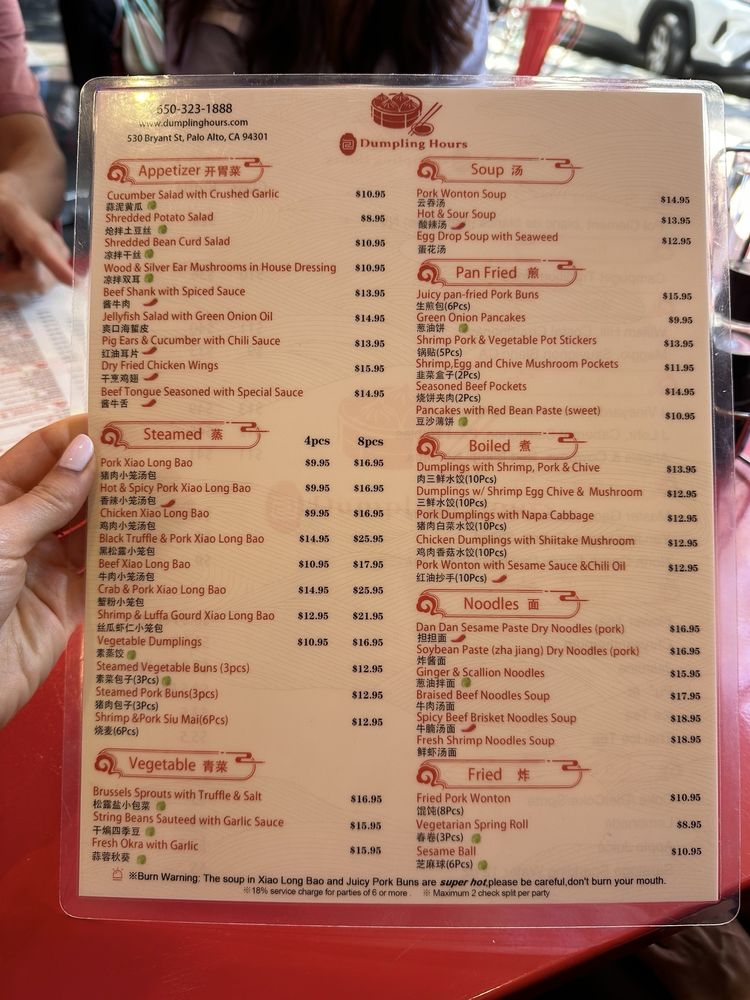 650-323-1888
www.dumplinghours.com
530 Bryant St, Palo Alto, CA 94301
Dumpling Hours
Appetizer 开胃菜
Cucumber Salad with Crushed Garlic $10.95
蒜泥黄瓜
Shredded Potato Salad $8.95
炝拌土豆丝
Shredded Bean Curd Salad $10.95
凉拌干丝
Wood & Silver Ear Mushrooms in House Dressing $10.95
凉拌双耳
Beef Shank with Spiced Sauce $13.95
酱牛肉
Jellyfish Salad with Green Onion Oil $14.95
爽口海蜇皮
Pig Ears & Cucumber with Chili Sauce $13.95
红油耳片
Dry Fried Chicken Wings $15.95
干烹鸡翅
Beef Tongue Seasoned with Special Sauce $14.95
酱牛舌
Steamed 蒸 4pcs 8pcs
Pork Xiao Long Bao $9.95 $16.95
猪肉小笼汤包
Hot & Spicy Pork Xiao Long Bao $9.95 $16.95
香辣小笼汤包
Chicken Xiao Long Bao $9.95 $16.95
鸡肉小笼汤包
Black Truffle & Pork Xiao Long Bao $14.95 $25.95
黑松露小笼包
Beef Xiao Long Bao $10.95 $17.95
牛肉小笼汤包
Crab & Pork Xiao Long Bao $14.95 $25.95
蟹粉小笼包
Shrimp & Luffa Gourd Xiao Long Bao $12.95 $21.95
丝瓜虾仁小笼包
Vegetable Dumplings $10.95 $16.95
素蒸饺
Steamed Vegetable Buns (3pcs) $12.95
素菜包子(3Pcs)
Steamed Pork Buns(3pcs) $12.95
猪肉包子(3Pcs)
Shrimp &Pork Siu Mai(6Pcs) $12.95
烧麦(6Pcs)
Vegetable 青菜
Brussels Sprouts with Truffle & Salt $16.95
松露盐小包菜
String Beans Sauteed with Garlic Sauce $15.95
干煸四季豆
Fresh Okra with Garlic $15.95
蒜蓉秋葵
Soup 汤
Pork Wonton Soup $14.95
云吞汤
Hot & Sour Soup $13.95
酸辣汤
Egg Drop Soup with Seaweed $12.95
蛋花汤
Pan Fried 煎
Juicy pan-fried Pork Buns $15.95
生煎包(6Pcs)
Green Onion Pancakes $9.95
葱油饼
Shrimp Pork & Vegetable Pot Stickers $13.95
锅贴(5Pcs)
Shrimp,Egg and Chive Mushroom Pockets $11.95
韭菜盒子(2Pcs)
Seasoned Beef Pockets $14.95
烧饼夹肉(2Pcs)
Pancakes with Red Bean Paste (sweet) $10.95
豆沙薄饼
Boiled 煮
Dumplings with Shrimp, Pork & Chive $13.95
肉三鲜水饺(10Pcs)
Dumplings w/ Shrimp Egg Chive & Mushroom $12.95
三鲜水饺(10Pcs)
Pork Dumplings with Napa Cabbage $12.95
猪肉白菜水饺(10Pcs)
Chicken Dumplings with Shiitake Mushroom $12.95
鸡肉香菇水饺(10Pcs)
Pork Wonton with Sesame Sauce &Chili Oil $12.95
红油抄手(10Pcs)
Noodles 面
Dan Dan Sesame Paste Dry Noodles (pork) $16.95
担担面
Soybean Paste (zha jiang) Dry Noodles (pork) $16.95
炸酱面
Ginger & Scallion Noodles $15.95
葱油拌面
Braised Beef Noodles Soup $17.95
牛肉汤面
Spicy Beef Brisket Noodles Soup $18.95
牛腩汤面
Fresh Shrimp Noodles Soup $18.95
鲜虾汤面
Fried 炸
Fried Pork Wonton $10.95
馄饨(8Pcs)
Vegetarian Spring Roll $8.95
春卷(3Pcs)
Sesame Ball $10.95
芝麻球(6Pcs)
※Burn Warning: The soup in Xiao Long Bao and Juicy Pork Buns are super hot,please be careful,don't burn your mouth.
※18% service charge for parties of 6 or more . ※ Maximum 2 check split per party